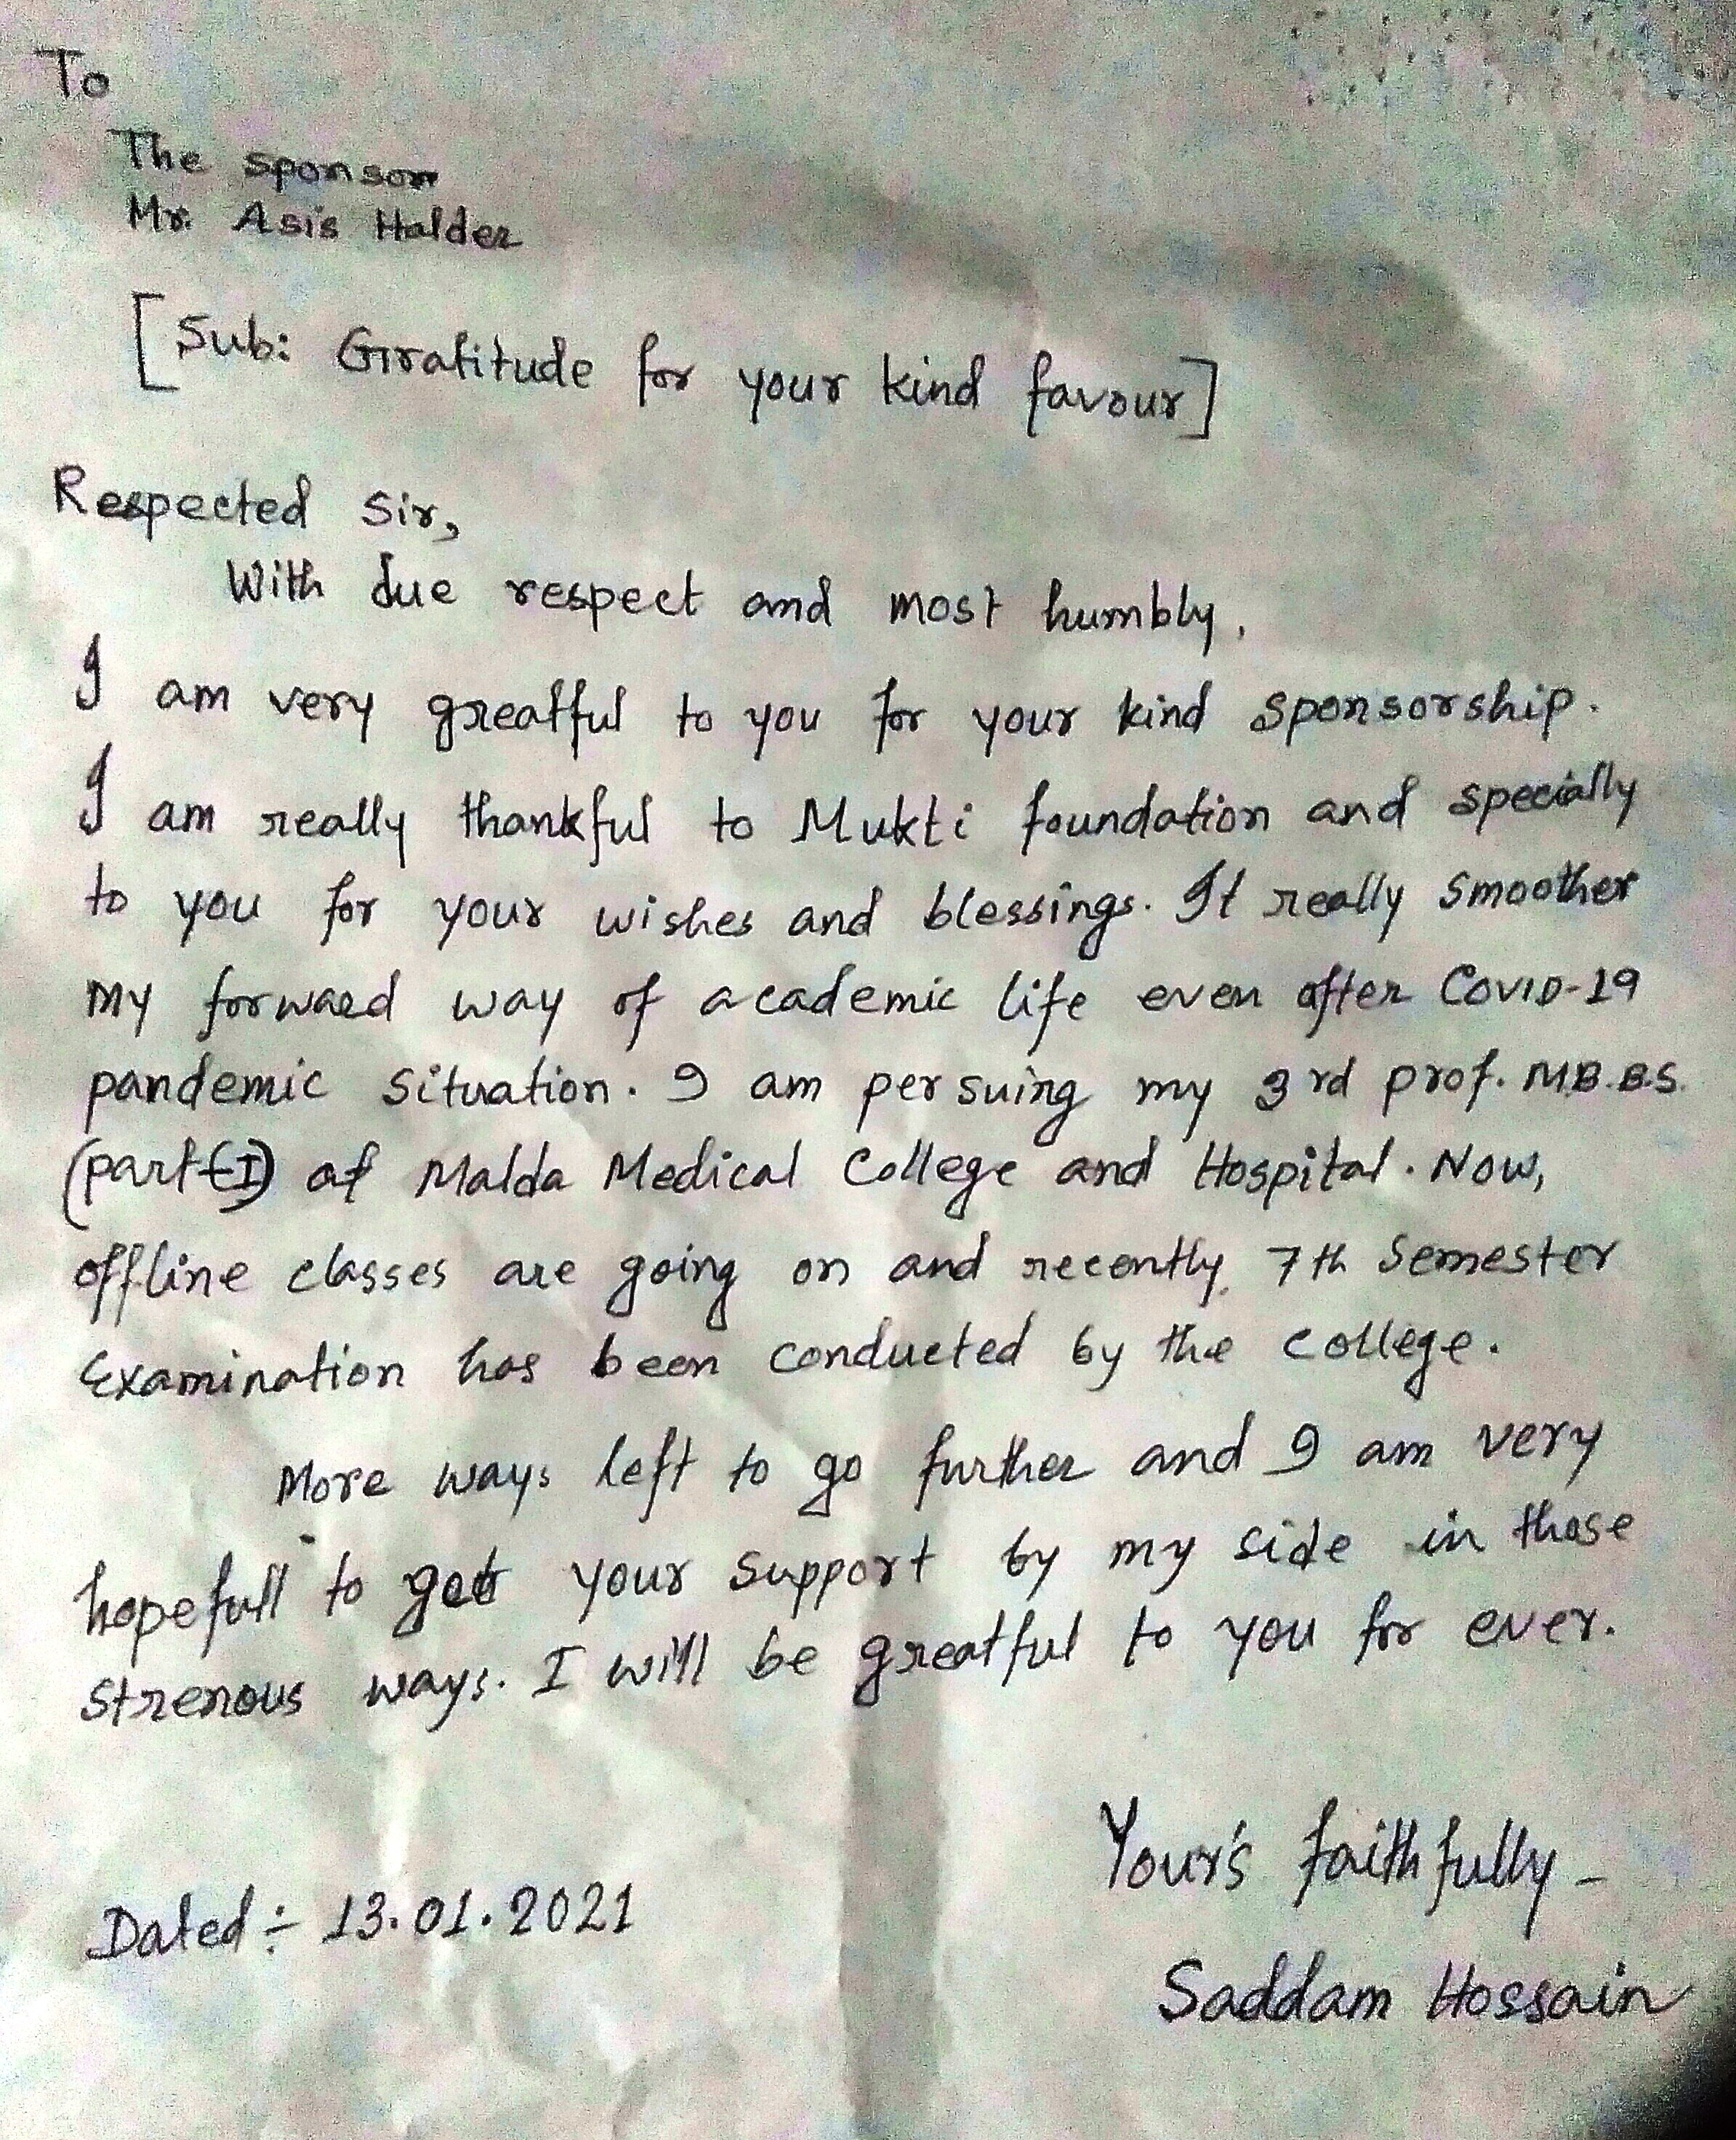 To
The sponsor
Mr. Asis Halder
[Sub: Gratitude for your kind favour]
Respected Sir,
With due respect and most humbly,
I am very greatful to you for your kind sponsorship.
I am really thankful to Mukti foundation and specially
to you for your wishes and blessings. It really smoother
my forward way of academic life even after COVID-19
pandemic situation. I am persuing my 3rd prof. M.B.B.S.
(part-I) of Malda Medical College and Hospital. Now,
offline classes are going on and recently, 7th Semester
Examination has been conducted by the college.
More ways left to go further and I am very
hopefull to get your support by my side in those
strenous ways. I will be greatful to you for ever.
Your's faithfully -
Dated ÷ 13.01.2021
Saddam Hossain